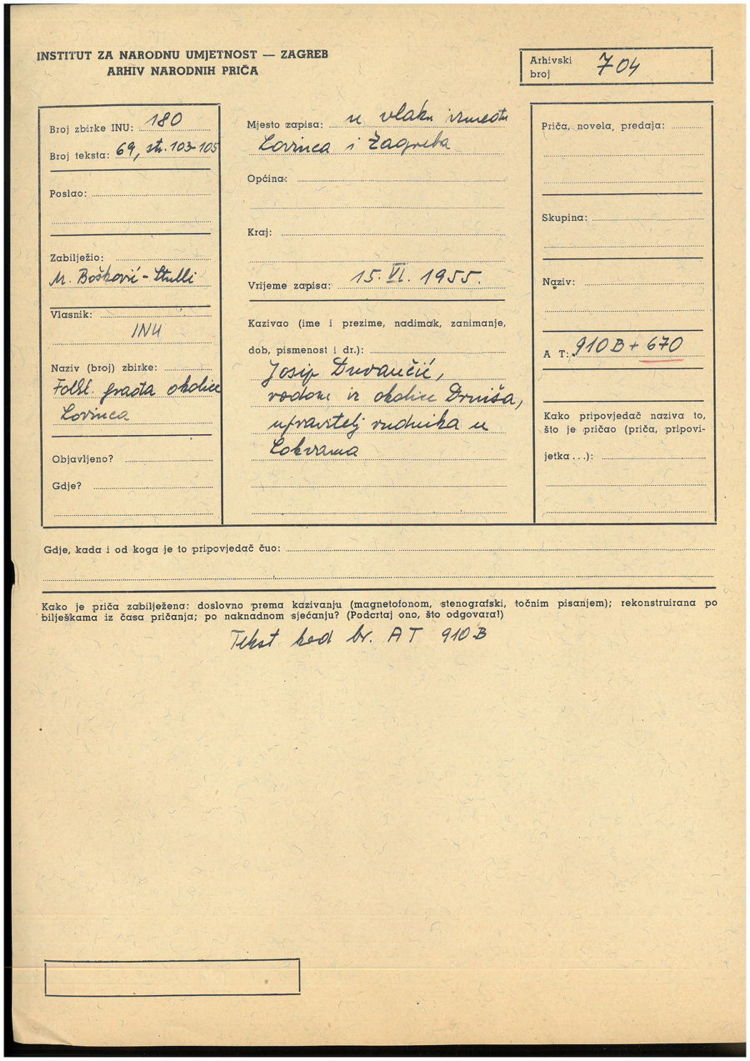 INSTITUT ZA NARODNU UMJETNOST — ZAGREB
ARHIV NARODNIH PRIČA
Arhivski broj 704
Broj zbirke INU: 180
Broj teksta: 69, str. 103-105
Poslao:
Zabilježio:
M. Bošković-Stulli
Vlasnik:
INU
Naziv (broj) zbirke:
Folkl. građa okolice
Lovinca
Objavljeno?
Gdje?
Mjesto zapisa: u vlaku između
Lovinca i Zagreba
Općina:
Kraj:
Vrijeme zapisa: 15. VI. 1955.
Kazivao (ime i prezime, nadimak, zanimanje,
dob, pismenost i dr.):
Josip
rodom iz okolice Drniša,
upravitelj rudnika u
Lokvama
Priča, novela, predaja:
Skupina:
Naziv:
A T: 910B + 670
Kako pripovjedač naziva to,
što je pričao (priča, pripovi-
jetka . . .):
Gdje, kada i od koga je to pripovjedač čuo:
Kako je priča zabilježena: doslovno prema kazivanju (magnetofonom, stenografski, točnim pisanjem); rekonstruirana po
bilješkama iz časa pričanja; po naknadnom sjećanju? (Podcrtaj ono, što odgovara!)
Tekst kod br. AT 910B